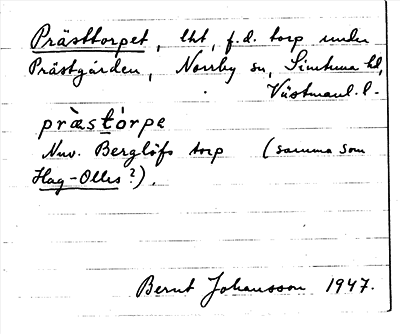 Prästtorpet, lht, f.d. torp under
Prästgården, Norrby sn, Simtuna hd,
Västmanl. l.
præ̀stòrpe
Nuv. Berglöfs torp (samma som
Hag-Olles?).
Bernt Johansson 1947.